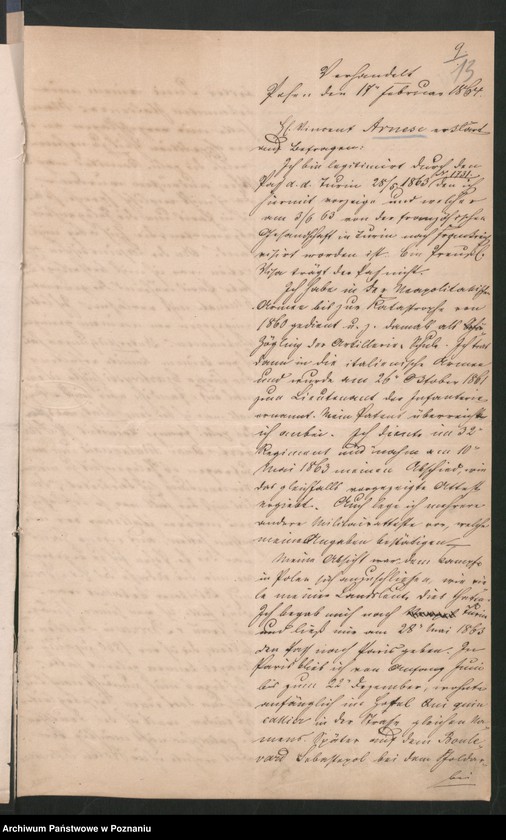 9
13
Verhandelt
Posen den 17ᵗ Februar 1864.
H. Vincent Arnese erklärt
auf Befragen:
Ich bin legitimirt durch den
Paß d. d. Turin 28/5 1863 № 1731. den ich
hiermit vorzeige und welcher
am 3/6 63 von der französischen
Gesandschaft in Turin nach Frankreich
visirt worden ist. Ein Preuß.
Visa trägt der Paß nicht.
Ich habe in der Neapolitanischen
Armee bis zur Katastrophe von
1860 gedient u. z. damals als
Zögling der Artillerie-Schule. Ich trat
dann in die italienische Armee
und wurde am 26ᵗ October 1861
zum Lieutenant der Infanterie
ernannt. Mein Patent überreiche
ich anbei. Ich diente im 32ᵗ
Regiment und nahm am 10ᵗ
Mai 1863 meinen Abschied, wie
das gleichfalls vorgezeigte Attest
ergiebt. Auch lege ich mehrere
andere Militairatteste vor, welche
meine Angaben bestätigen.
Meine Absicht war, dem Kampfe
in Polen sich anzuschließen, wie vie-
le meiner Landsleute dies thaten.
Ich begab mich nach Turin
und ließ mir am 28ᵗ Mai 1863
den Paß nach Paris geben. In
Paris blieb ich von Anfang Juni
bis zum 26ᵗ Dezember, wohnte
anfänglich im Hotel
in der Straße gleichen Na-
mens. Später auf dem Boule-
vard Sebastopol bei dem
bei
Archiwum Państwowe w Poznaniu